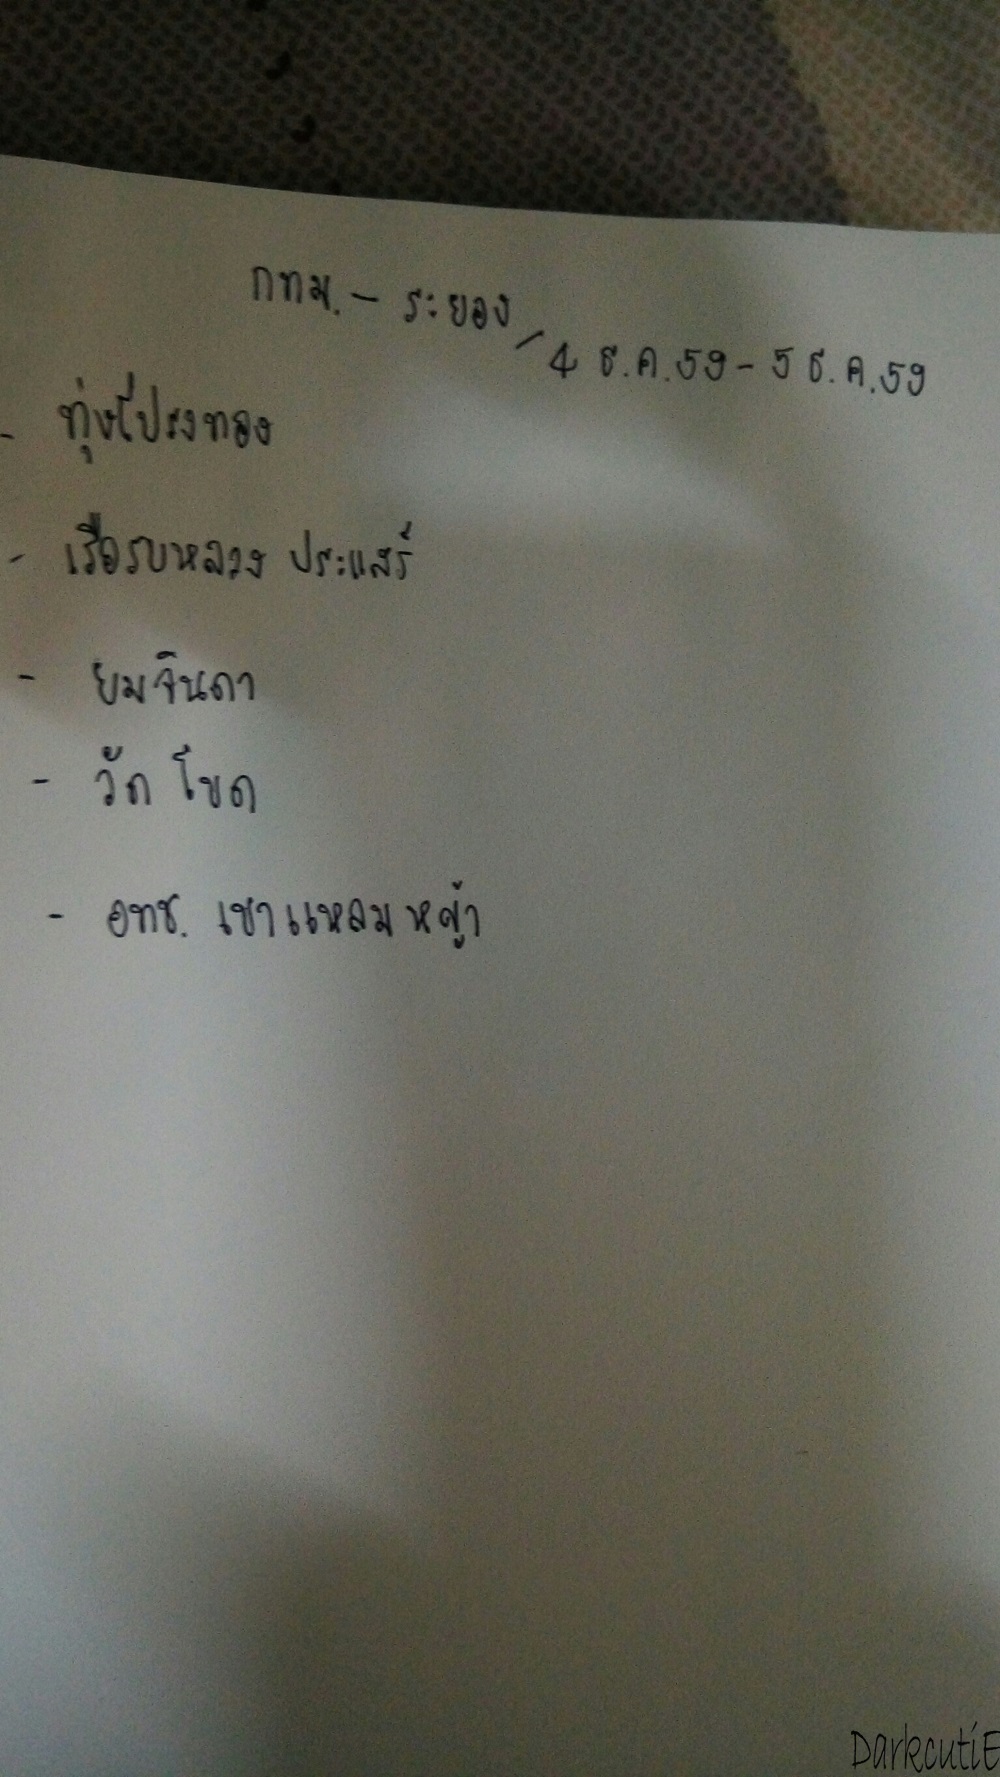 กทม. - ระยอง / 4 ธ.ค.59 - 5 ธ.ค.59
- ทุ่งโปรงทอง
- เรือรบหลวง ประแสร์
- ยมจินดา
- วัด โขด
- อทช. เขาแหลม หญ้า
DarkcutiE